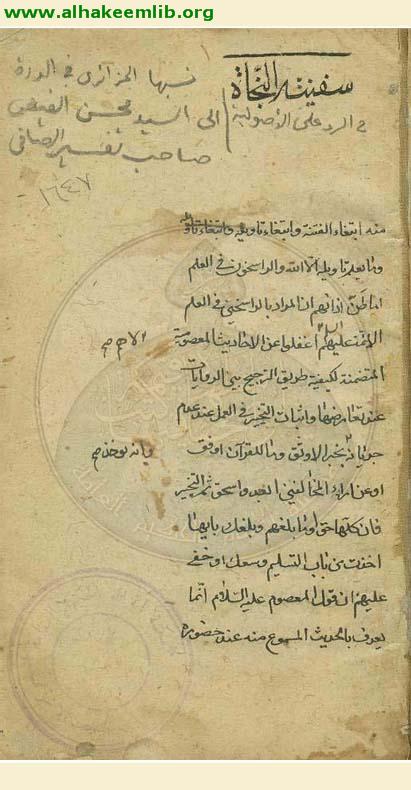 www.alhakeemlib.org
سفينة النجاة
في الرد على الأصولية
نسبها الجزائري في الدرة
الى السيد محسن الفيض
صاحب تفسير الصافي
١٦٤٧
منه ابتغاء الفتنة وابتغاء تاويله وابتغاء تاويله
وما يعلم تاويله الا الله والراسخون في العلم
اما ظن اذانهم ان المراد بالراسخين في العلم
الائمة عليهم السلام اغفلوا عن الاحاديث المعصومية
المتضمنة لكيفية طريق الترجيح بين الروايات
عند تعارضها واثبات التخيير في العمل عند عدم
بخبر الاوثق وما للقران اوفق
او عن اراء المخالفين ابعد واسحق ثم التخيير
فان كلها حق وما بلغهم وبلغك بايهما
اخذت من باب التسليم وسعك او خفي
عليهم ان قول المعصوم عليه السلام انما
يعرف بالحديث المسموع منه عند حضوره
فانه يوخذ